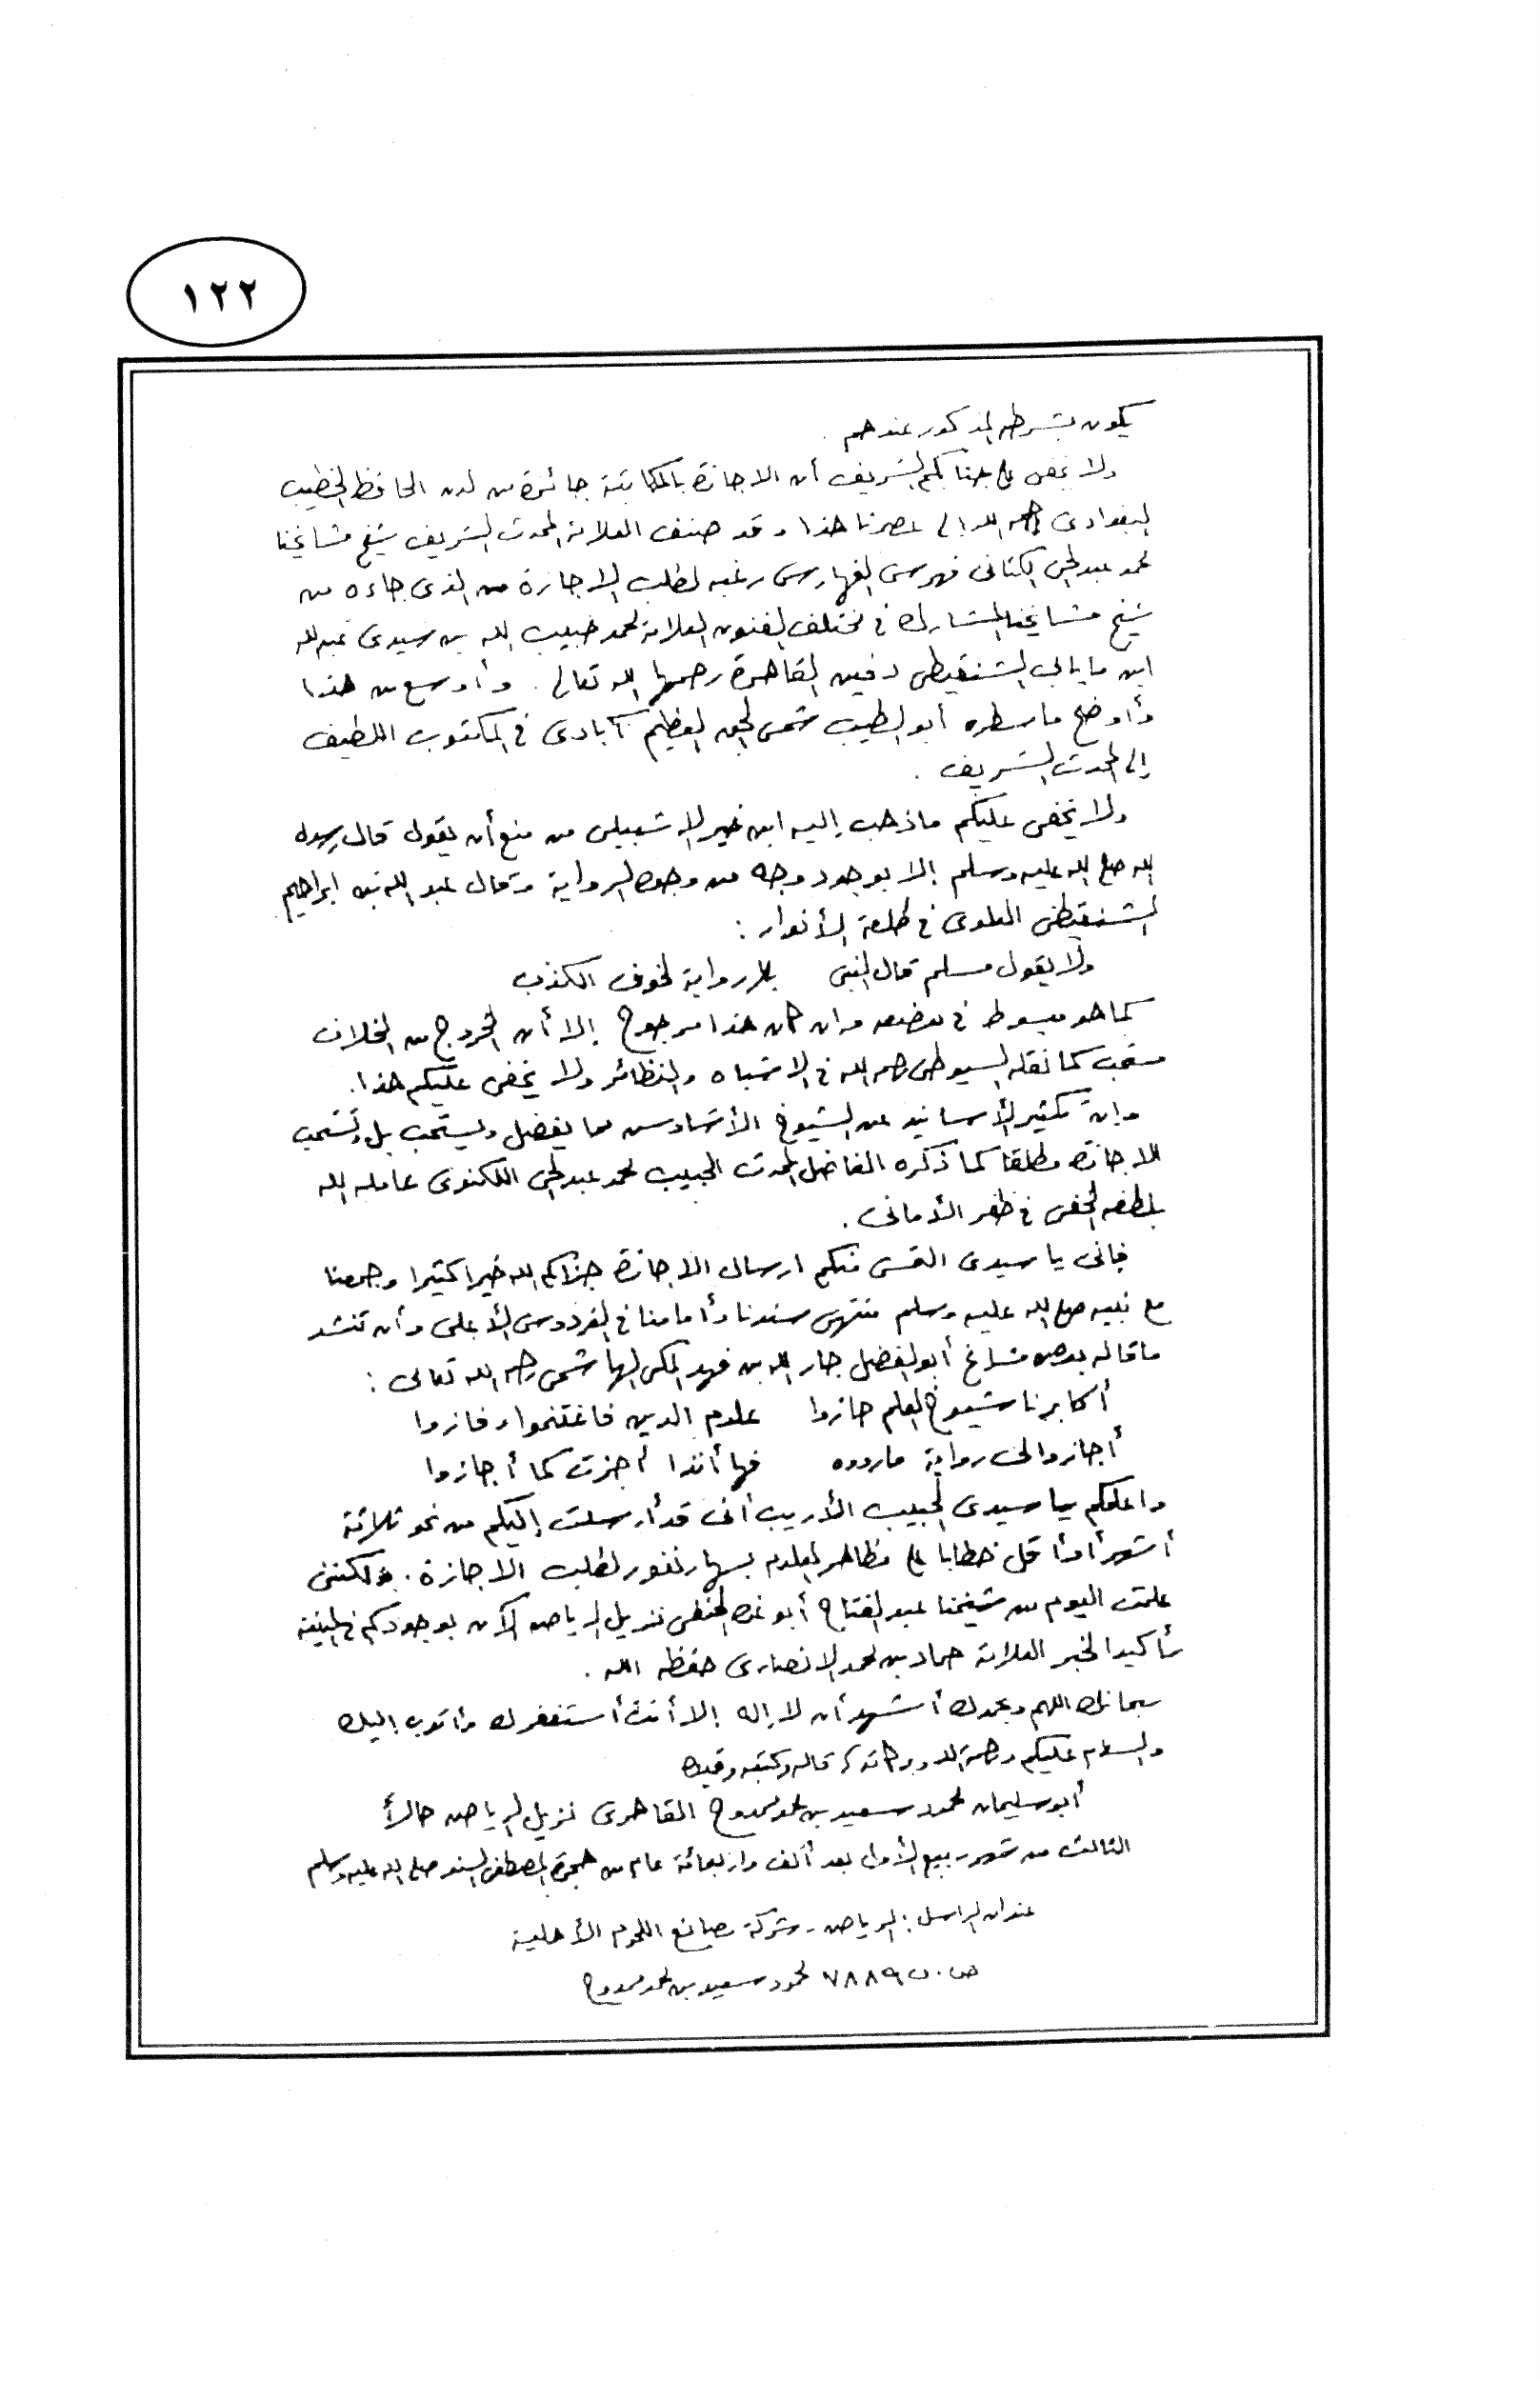 ١٢٢
يكون بشرطه المذكور عندهم .
ولا يخفى على جنابكم الشريف أن الاجازة بالمكاتبة جائزة من لدن الحافظ الخطيب
البغدادى رحمه الله إلى عصرنا هذا وقد صنف العلامة المحدث الشريف شيخ مشايخنا
محمد عبدالحى الكتانى فهرس الفهارس رغبه لطلب الاجازة من الذى جاءه من
شيخ مشايخنا المشارك فى مختلف الفنون العلامة محمد حبيب الله بن سيدى عبدالله
ابن مايابى الشنقيطى دفين القاهرة رحمهما الله تعالى . وأوسع من هذا
وأوضح ما سطره أبو الطيب شمس الحق العظيم آبادى فى المكتوب اللطيف
إلى المحدث الشريف .
ولا يخفى عليكم ماذهب إليه ابن خير الاشبيلى من منع أن يقول قال رسول
الله صلى الله عليه وسلم إلا بوجود وجه من وجوه الرواية وقال عبد الله بن ابراهيم
الشنقيطى العلوى فى طلعة الأنوار :
ولا يقول مسلم قال النبى    بلا رواية لخوف الكذب
كما هو مبسوط فى موضعه وان كان هذا مرجوح إلا أن الخروج من الخلاف
مستحب كما نقله السيوطى رحمه الله فى الاشباه والنظائر ولا يخفى عليكم هذا .
وإن تكثير الأسانيد عن الشيوخ الأشاوس مما يفضل ويستحب بل وتستحب
الاجازة مطلقا كما ذكره الفاضل المحدث الحبيب محمد عبدالحى اللكنوى عامله الله
بلطفه الخفى فى ظفر الأمانى .
فانى يا سيدى التمس منكم ارسال الاجازة جزاكم الله خيرا كثيرا وجمعنا
مع نبيه صلى الله عليه وسلم منتهى سندنا وأمامنا فى الفردوس الأعلى وأن تنشد
ماقاله بعض مشايخ أبو الفضل جار الله بن فهد المكى الهاشمى رحمه الله تعالى :
أكابرنا شيوخ العلم حازوا    علوم الدين فاغتنموا وفازوا
أجازوا لى رواية مارووه    فها أنذا أجزت كما أجازوا
واعلمكم يا سيدى الحبيب الأريب أنى قد أرسلت إليكم من نحو ثلاثة
أشهر أو أقل خطابا على مظاهر العلوم بسهارنفور لطلب الاجازة . ولكننى
علمت اليوم من شيخنا عبد الفتاح أبو غدة الحنفى نزيل الرياض الآن بوجودكم فى المدينة
تأكيدا لخبر العلامة حماد بن محمد الانصارى حفظه الله .
سبحانك اللهم وبحمدك أشهد أن لا إله إلا أنت أستغفرك وأتوب إليك
والسلام عليكم ورحمة الله وبركاته قاله وكتبه وقيده
أبو سليمان محمود سعيد بن محمد ممدوح القاهرى نزيل الرياض حالاً
الثالث من شهر ربيع الأول بعد ألف واربعمائة عام من هجرة المصطفى السند صلى الله عليه وسلم
عنوان المراسل : الرياض - شركة مصانع اللحوم الأهلية
ص . ب ٧٨٨٩ محمود سعيد بن محمد ممدوح